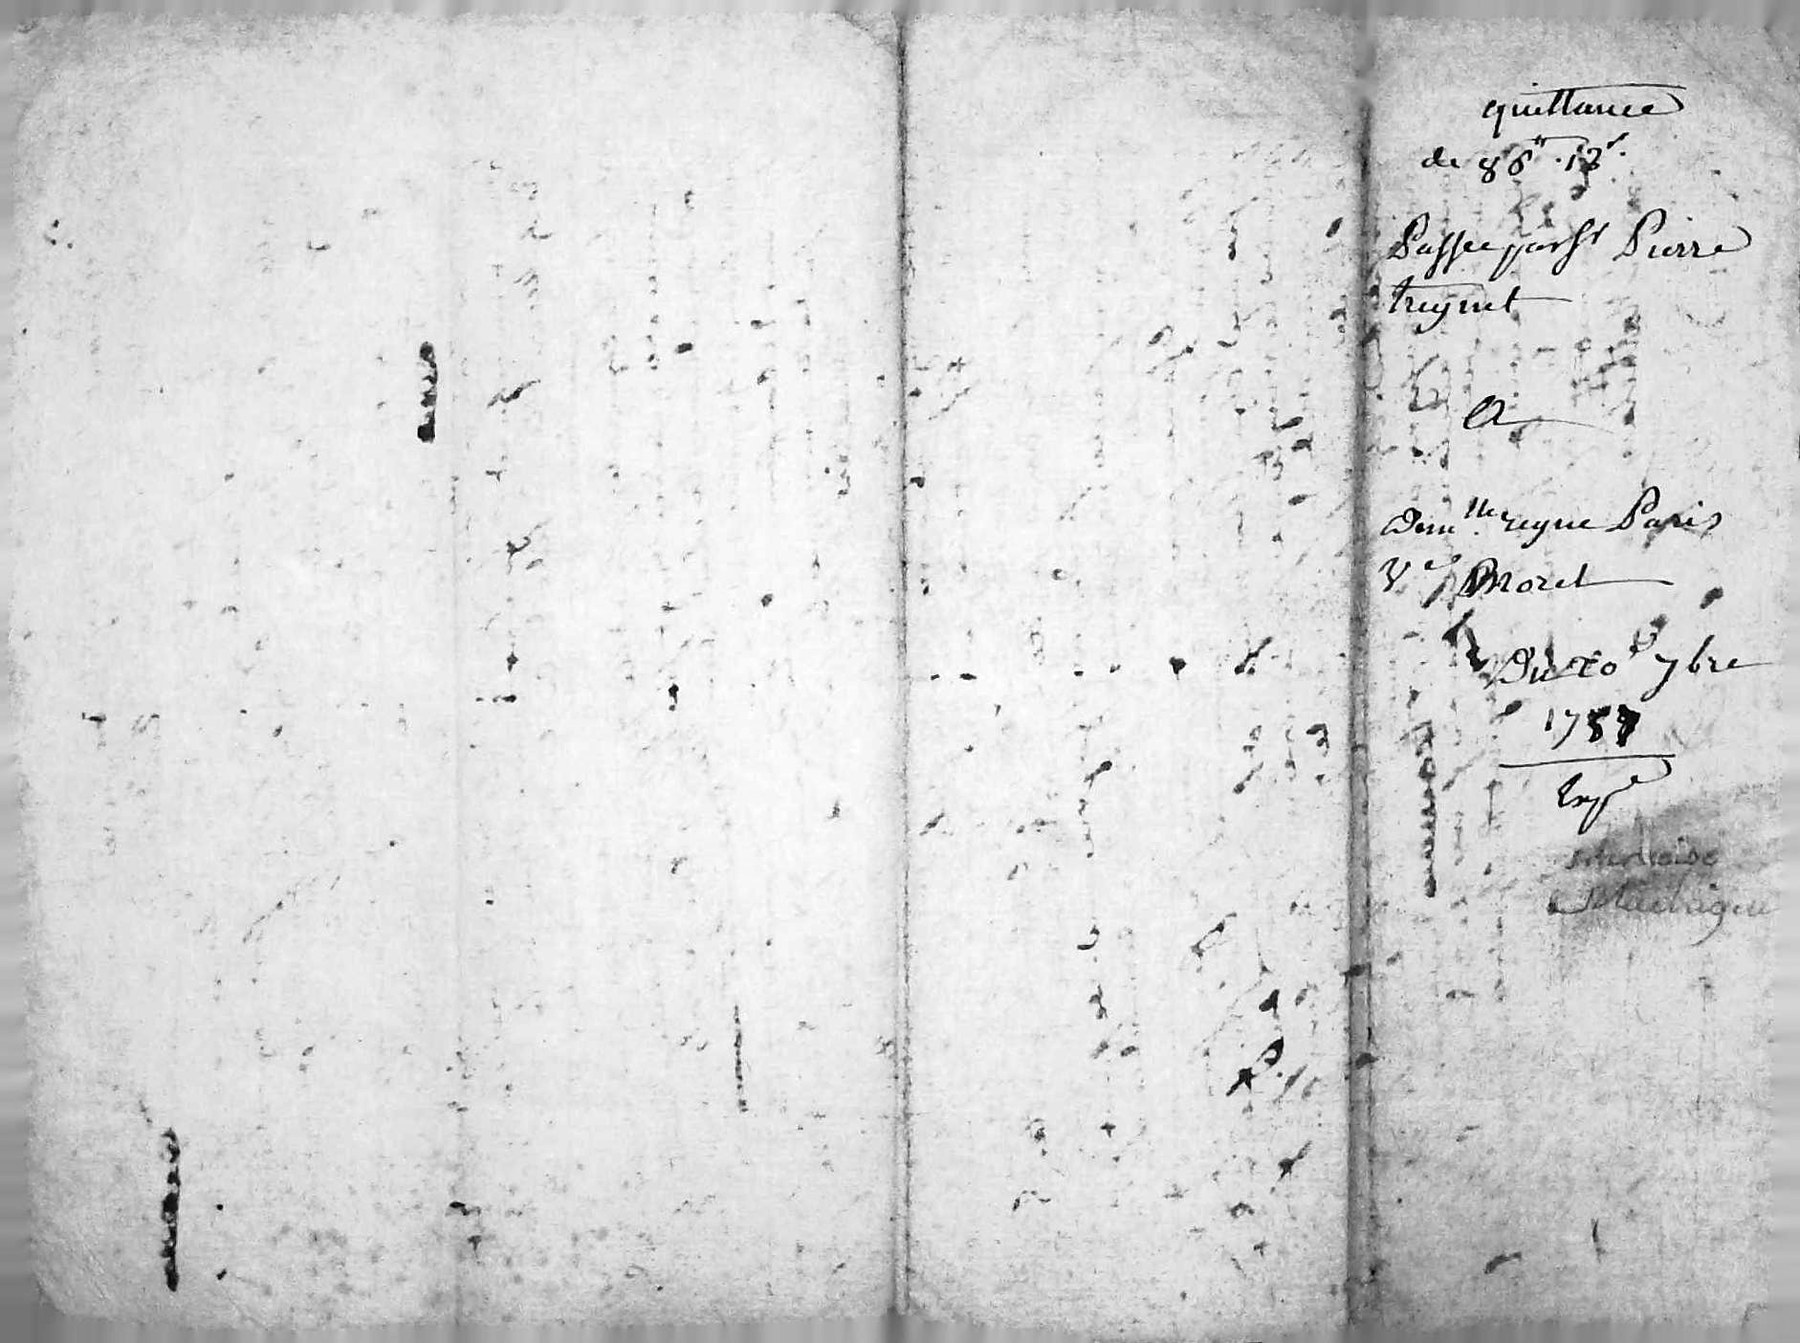 quittance
de 86tt. 13s.
Passee par Sr Pierre
treynet
A
Demlle. reyne Paris
Ve Moret
Du 20e 7bre
1787
Expe